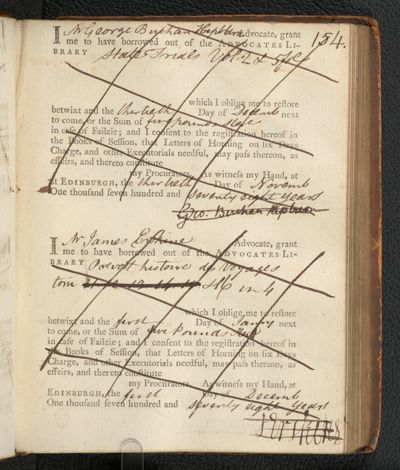 154.
I Mr George Buchan Hepburn Advocate, grant
me to have borrowed out of the ADVOCATES LI-
BRARY State Trials Vol: 2 & 5 fol:
which I oblige me to restore
betwixt and the thirtieth Day of Decemb next
to come, or the Sum of five pounds
in case of Failzie; and I consent to the registration hereof in
the Books of Session, that Letters of Horning on six Days
Charge, and other Executorials needful, may pass thereon, as
effeirs, and thereto constitute
my Procurators. As witness my Hand, at
at EDINBURGH, the thirtieth Day of Novemb
One thousand seven hundred and seventy eight years
Geo: Buchan Hepburn
I Mr James Erskine Advocate, grant
me to have borrowed out of the ADVOCATES LI-
BRARY Prevost histoire des Voyages
tom in 4
which I oblige me to restore
betwixt and the first Day of Janry next
to come, or the Sum of five Pounds
in case of Failzie; and I consent to the registration hereof in
the Books of Session, that Letters of Horning on six Days
Charge, and other Executorials needful, may pass thereon, as
effeirs, and thereto constitute
my Procurators. As witness my Hand, at
EDINBURGH, the first Day of Decemb
One thousand seven hundred and seventy eight years